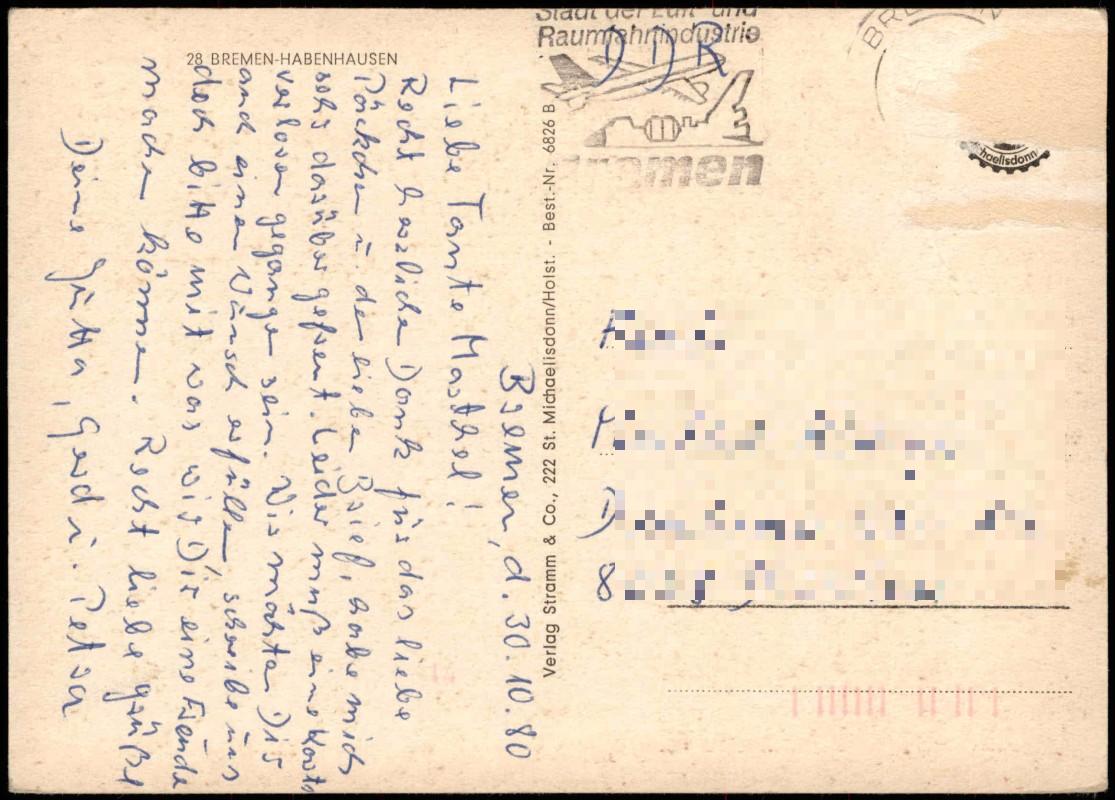 28 BREMEN-HABENHAUSEN
Bremen, d. 30.10.80
Liebe Tante Marthel!
Recht herzlichen Dank für das liebe
Päckchen u. den lieben Brief, habe mich
sehr darüber gefreut. Leider muß eine Karte
verloren gegangen sein. Wir möchten Dir
auch einen Wunsch erfüllen, schreibe uns
doch bitte mit was wir Dir eine Freude
machen können. Recht liebe Grüße
Deine Jutta, Gerd u. Petra
Verlag Stramm & Co., 222 St. Michaelisdonn/Holst. - Best.-Nr. 6826 B
Stadt der Luft- und
Raumfahrtindustrie
Bremen
DDR
BRE
haelisdonn